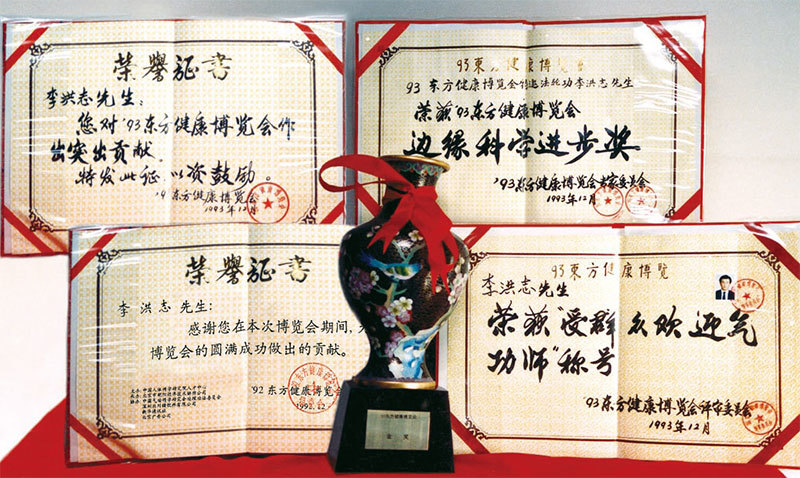 荣誉证书
李洪志先生：
您对'93东方健康博览会作
出突出贡献
特发此证，以资鼓励。
东方健康博览会
1993年12月
93東方健康博覽会
93东方健康博览会特邀法轮功李洪志先生
荣获'93东方健康博览会
边缘科学进步奖
'93东方健康博览会专家委员会
1993年12月
荣誉证书
李洪志先生：
感谢您在本次博览会期间，为
博览会的圆满成功做出的贡献。
'92东方健康博览会
1992.12
93東方健康博覽
李洪志先生
荣获"受群众欢迎气
功师"称号
'93东方健康博览会评审委员会
1993年12月
金奖